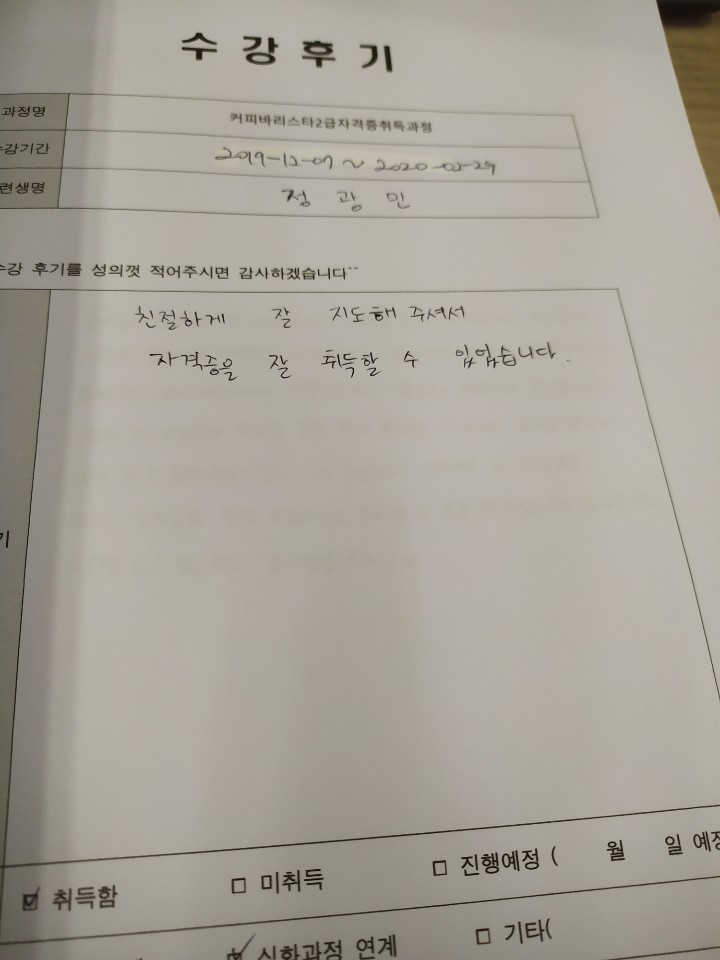 수강후기
과정명 커피바리스타2급자격증취득과정
수강기간 2019-12-07 ~ 2020-02-29
련생명 정광민
수강 후기를 성의껏 적어주시면 감사하겠습니다^^
친절하게 잘 지도해 주셔서
자격증을 잘 취득할 수 있었습니다.
기
☑ 취득함 □ 미취득 □ 진행예정 ( 월 일 예정
☑ 심화과정 연계 □ 기타(